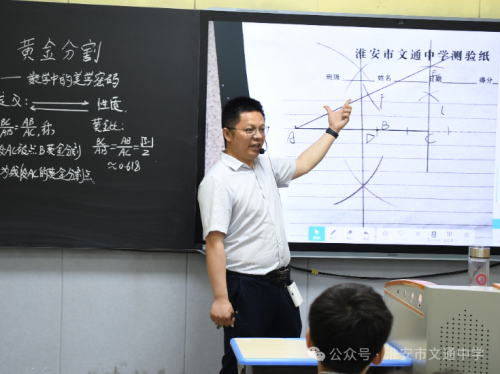 黄金分割
——数学中的美学密码
定义:
性质
BC/AB = AB/AC,称
黄金比:
BC/AB = AB/AC = (√5-1)/2
≈0.618
段AC被点B黄金分割
为线段AC的黄金分割点
淮安市文通中学测验纸
班级 姓名 日期 得分
A
D
B
C
公众号·淮安市文通中学